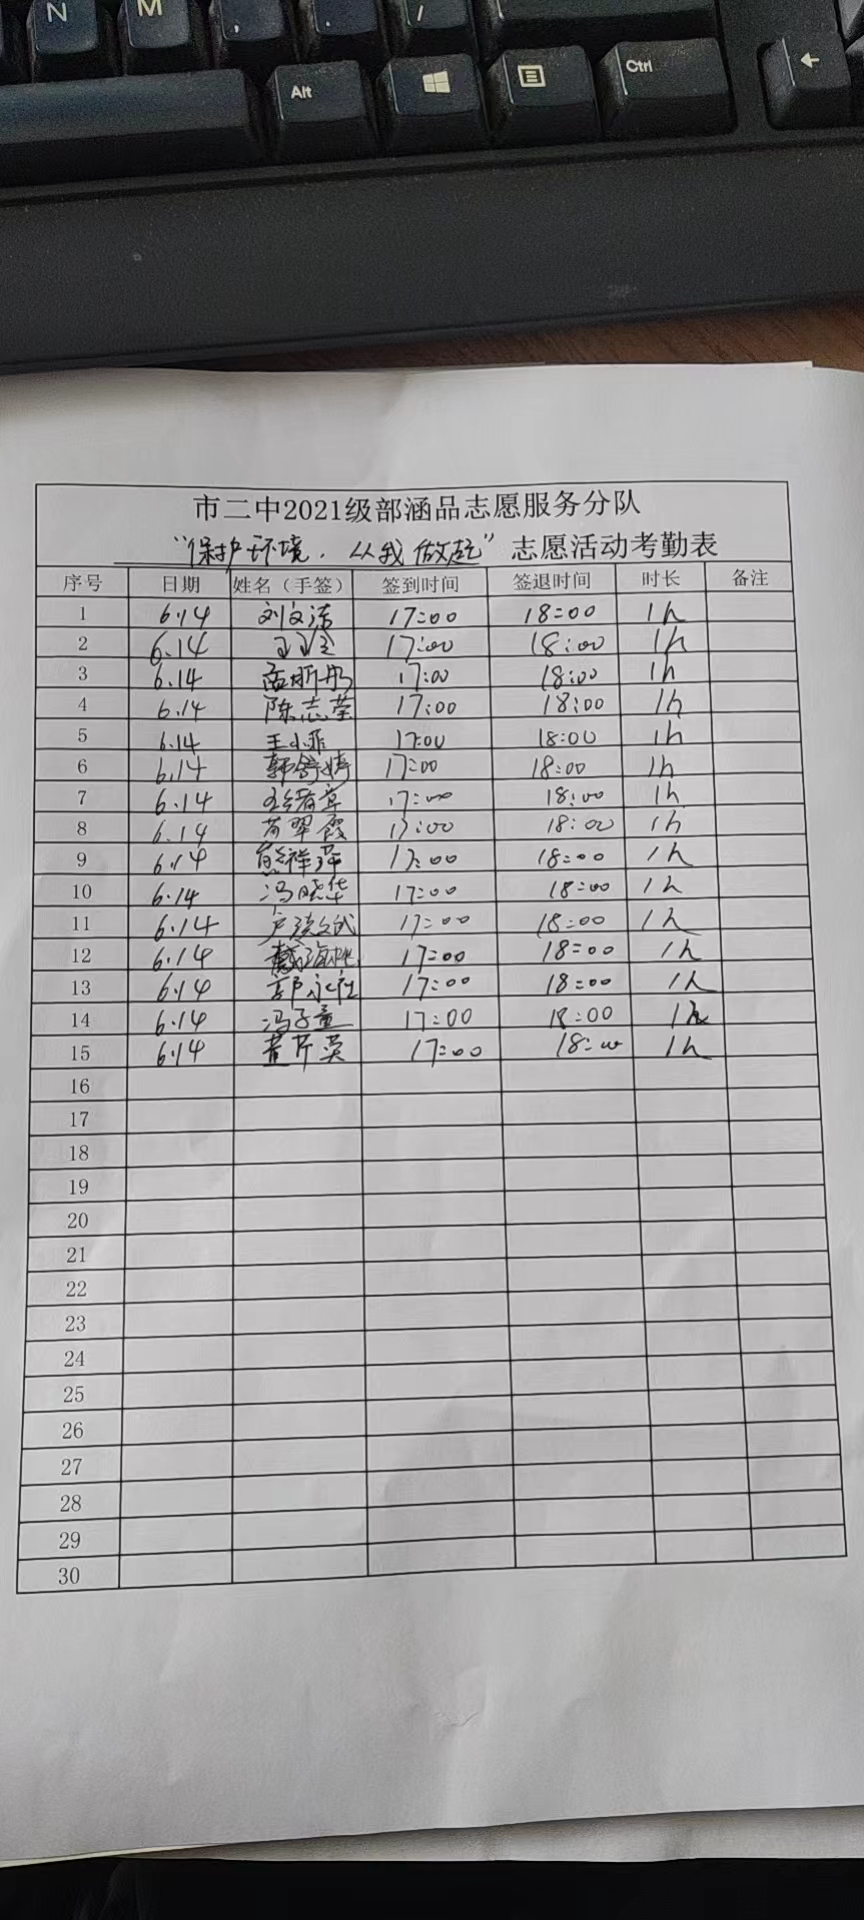 N M , . /
Alt Ctrl
市二中2021级部涵品志愿服务分队
"保护环境，从我做起"志愿活动考勤表
序号 日期 姓名（手签） 签到时间 签退时间 时长 备注
1 6.14 刘文洁 17:00 18:00 1h
2 6.14 17:00 18:00 1h
3 6.14 孟昕彤 17:00 18:00 1h
4 6.14 陈志莹 17:00 18:00 1h
5 6.14 王小菲 17:00 18:00 1h
6 6.14 韩舒婷 17:00 18:00 1h
7 6.14 17:00 18:00 1h
8 6.14 翠霞 17:00 18:00 1h
9 6.14 熊祥萍 17:00 18:00 1h
10 6.14 冯晓华 17:00 18:00 1h
11 6.14 17:00 18:00 1h
12 6.14 17:00 18:00 1h
13 6.14 17:00 18:00 1h
14 6.14 冯子童 17:00 18:00 1h
15 6.14 董芹英 17:00 18:00 1h
16
17
18
19
20
21
22
23
24
25
26
27
28
29
30